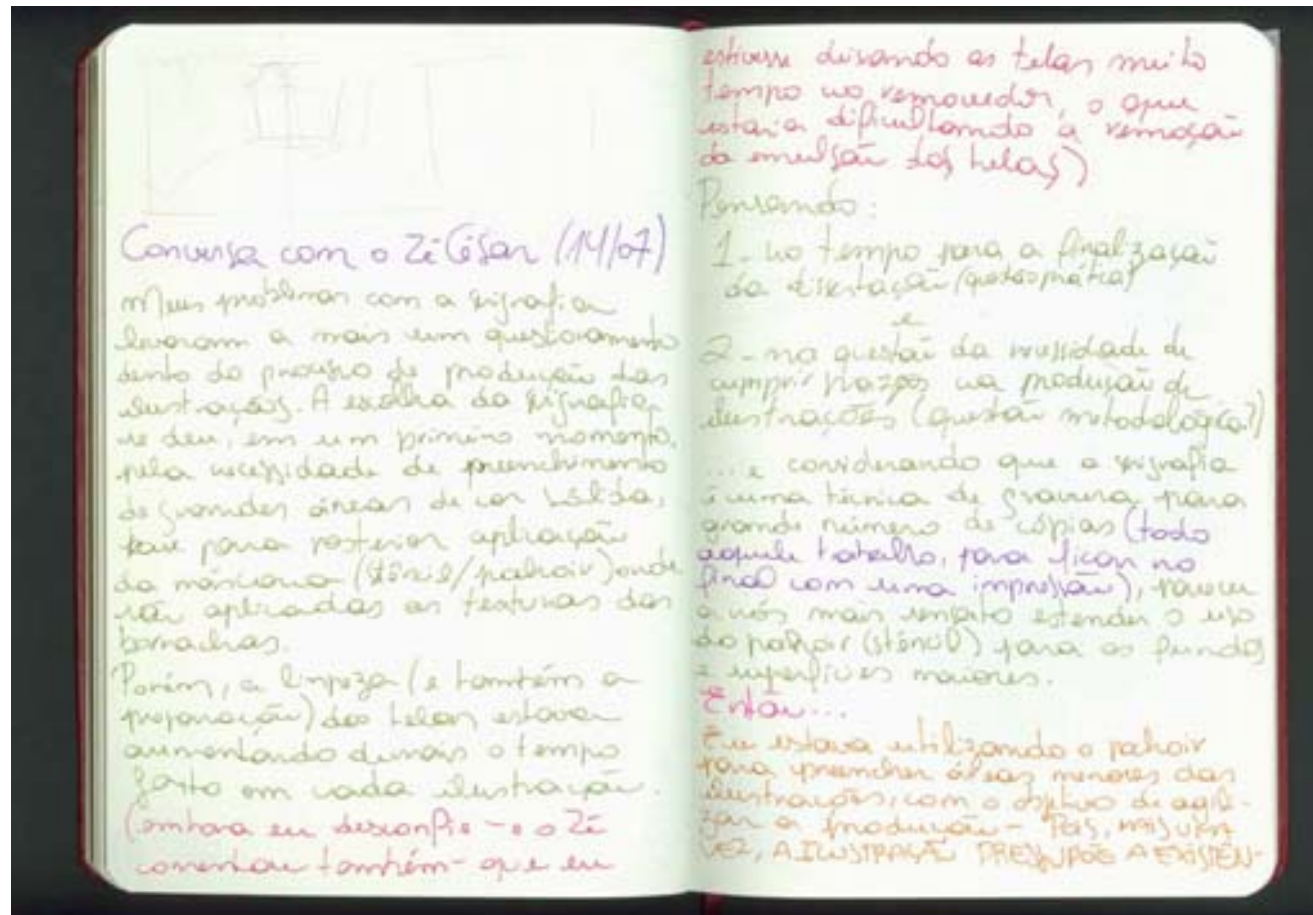 Conversa com o Zé César (14/07)
Meus problemas com a serigrafia
levaram a mais um questionamento
dento do processo de produção das
ilustrações. A escolha da serigrafia
se deu, em um primeiro momento,
pela necessidade de preenchimento
de grandes áreas de cor sólida,
para posterior aplicação
da máscara (stêncil/pochoir) onde
são aplicadas as texturas das
borrachas.
Porém, a limpeza (e também a
preparação) das telas estava
aumentando demais o tempo
gasto em cada ilustração.
(embora eu desconfie - e o Zé
comentou também - que eu
estivesse deixando as telas muito
tempo no removedor, o que
estaria dificultando a remoção
da emulsão das telas)
Pensando:
1 - no tempo para a finalização
da dissertação (questão prática)
e
2 - na questão da necessidade de
cumprir prazos na produção de
ilustrações (questão metodológica?)
... e considerando que a serigrafia
é uma técnica de gravura para
grande número de cópias (todo
aquele trabalho, para ficar no
final com uma impressão), pareceu
a nós mais sensato estender o uso
do pochoir (stêncil) para os fundos
e superfícies maiores.
Então...
Eu estava utilizando o pochoir
para preencher áreas menores das
ilustrações, com o objetivo de agili-
zar a produção - POIS, MAIS UMA
VEZ, A ILUSTRAÇÃO PRESSUPÕE A EXISTÊN-